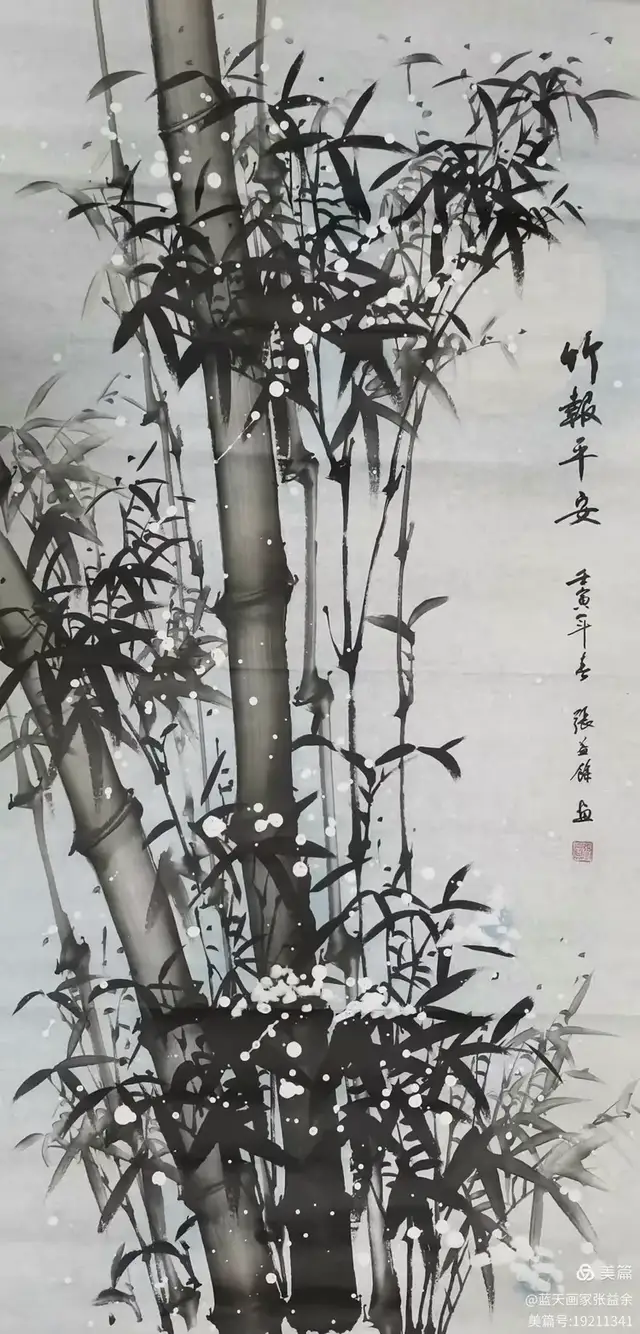 竹報平安
壬寅年春 張益餘畫
美篇
@蓝天画家张益余
美篇号:19211341